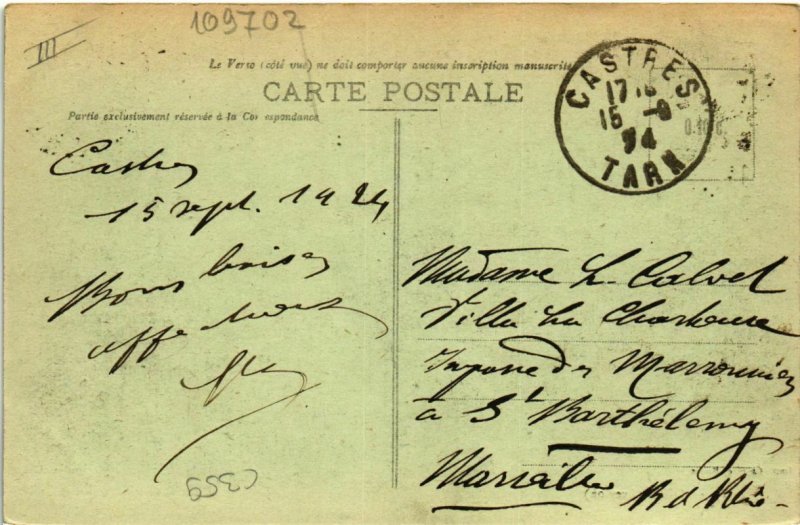 109702
III
Le Verso (côté vue) ne doit comporter aucune inscription manuscrite
CARTE POSTALE
Partie exclusivement réservée à la Correspondance
CASTRES
15 -9
24
TARN
Castres
15 sept. 1924
Bons baisers
affectueux
Madame L. Calvet
Villa La Chartreuse
Impasse des Marronniers
à St Barthélemy
Marseille B d Rhône
C359